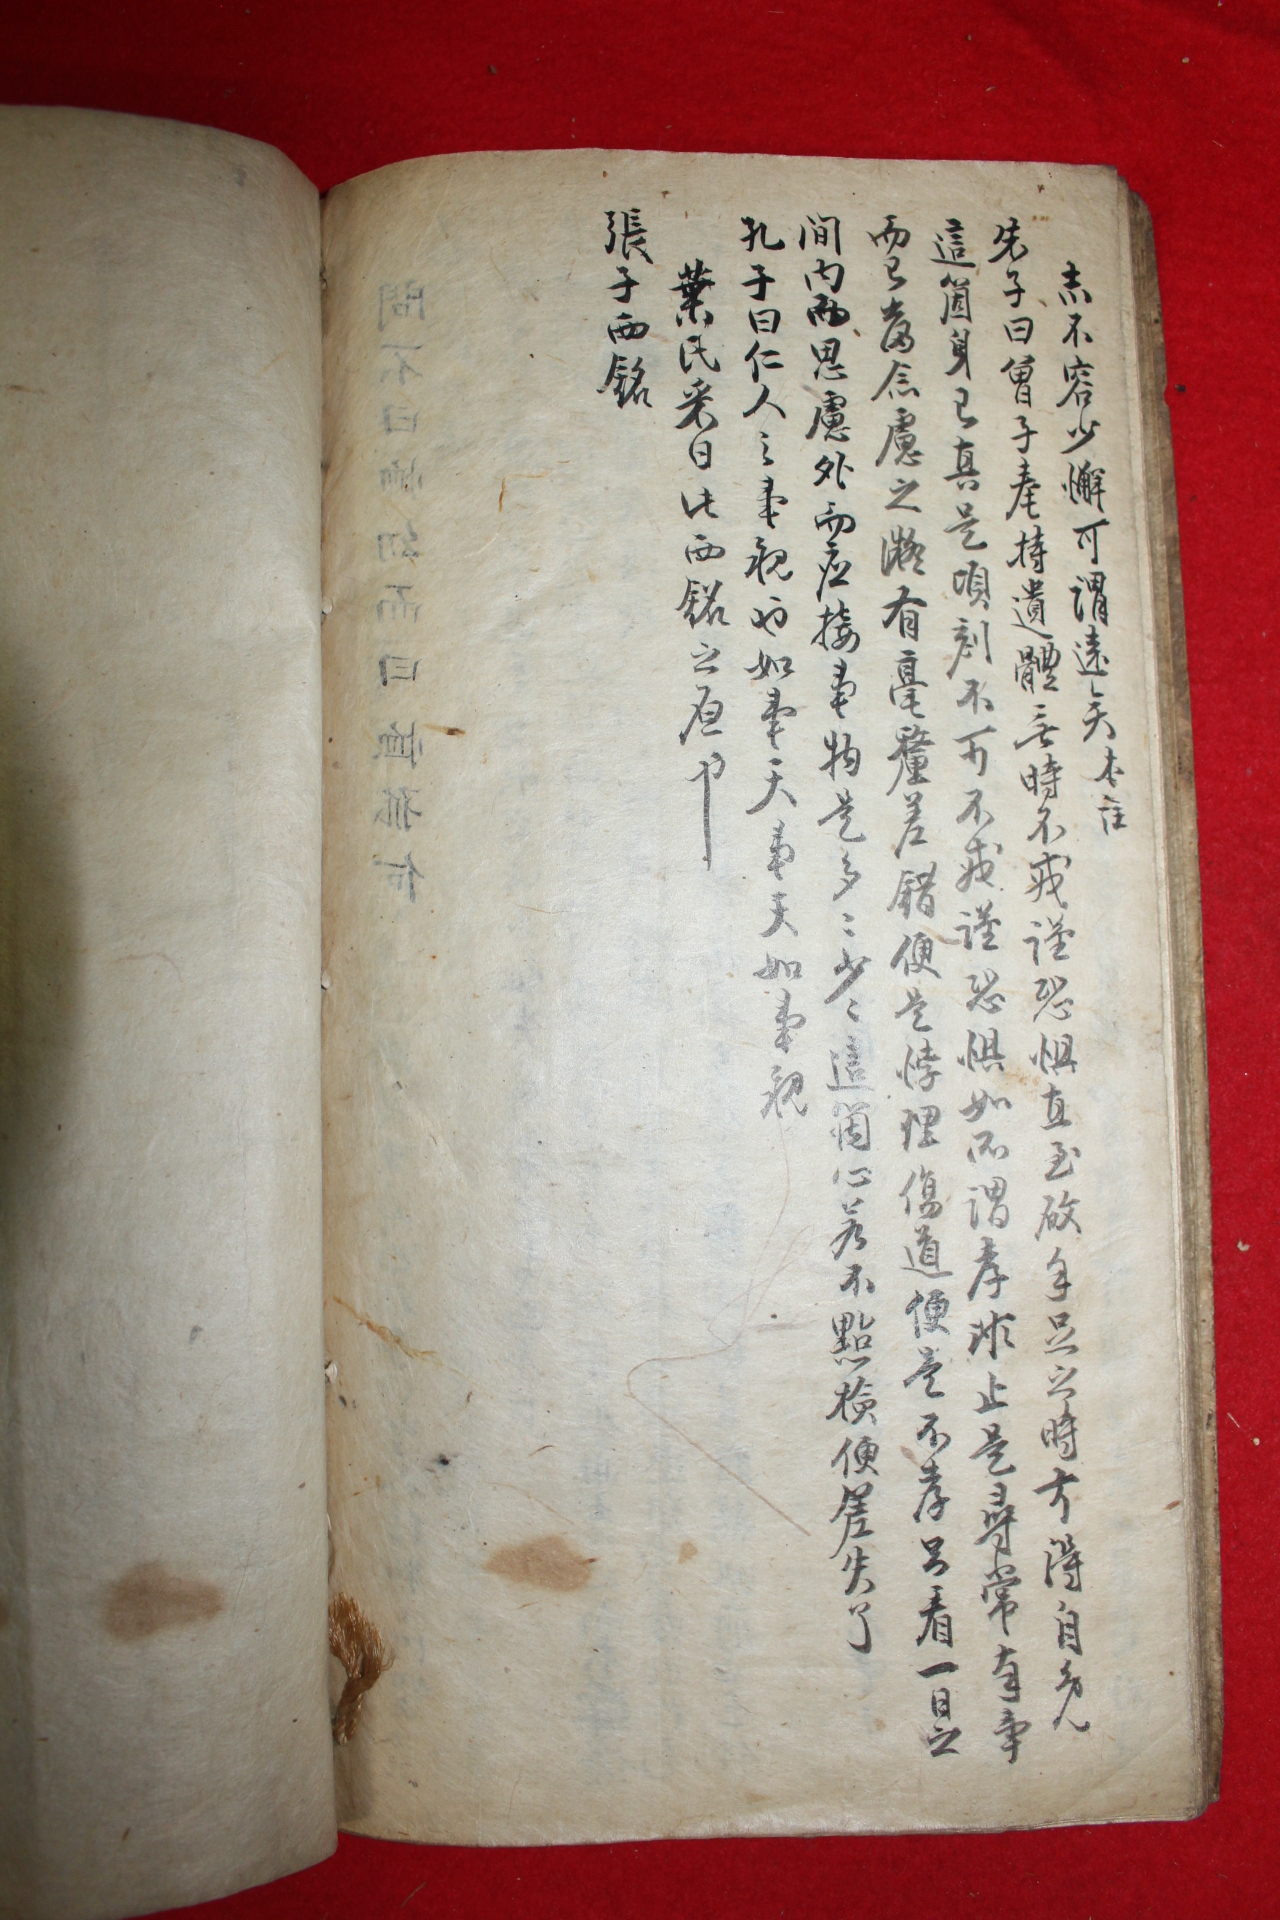 志不容少懈可謂遠矣本註
朱子曰曾子奉持遺體無時不戒謹恐懼直至啟手足之時方得自免
這箇身已真是頃刻不可不戒謹恐懼如所謂孝非止是尋常奉事
而已當念慮之微有毫釐差錯便是悖理傷道便是不孝只看一日之
間內而思慮外而应接事物是多〻少〻這箇心若不點檢便差失了
孔子曰仁人之事親也如事天事天如事親
葉氏采曰此西銘之原也
張子西銘